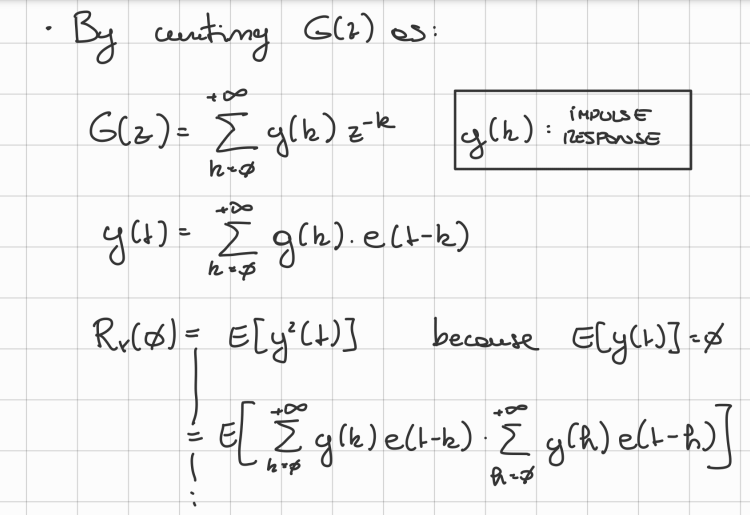 · By writing G(z) as:
G(z) = ∑_{k=∅}^{+∞} g(k) z^{-k}
g(k) : IMPULSE RESPONSE
y(t) = ∑_{k=∅}^{+∞} g(k) · e(t-k)
R_y(∅) = E[y²(t)] because E[y(t)] = ∅
= E[ ∑_{k=∅}^{+∞} g(k) e(t-k) · ∑_{h=∅}^{+∞} g(h) e(t-h) ]
⋮